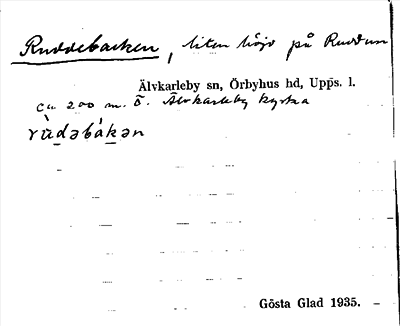 Ruddebacken, liten höjd på Ruddun
Älvkarleby sn, Örbyhus hd, Upps. l.
ca 200 m. Ö. Älvkarleby kyrka
rùdəbákən
Gösta Glad 1935.